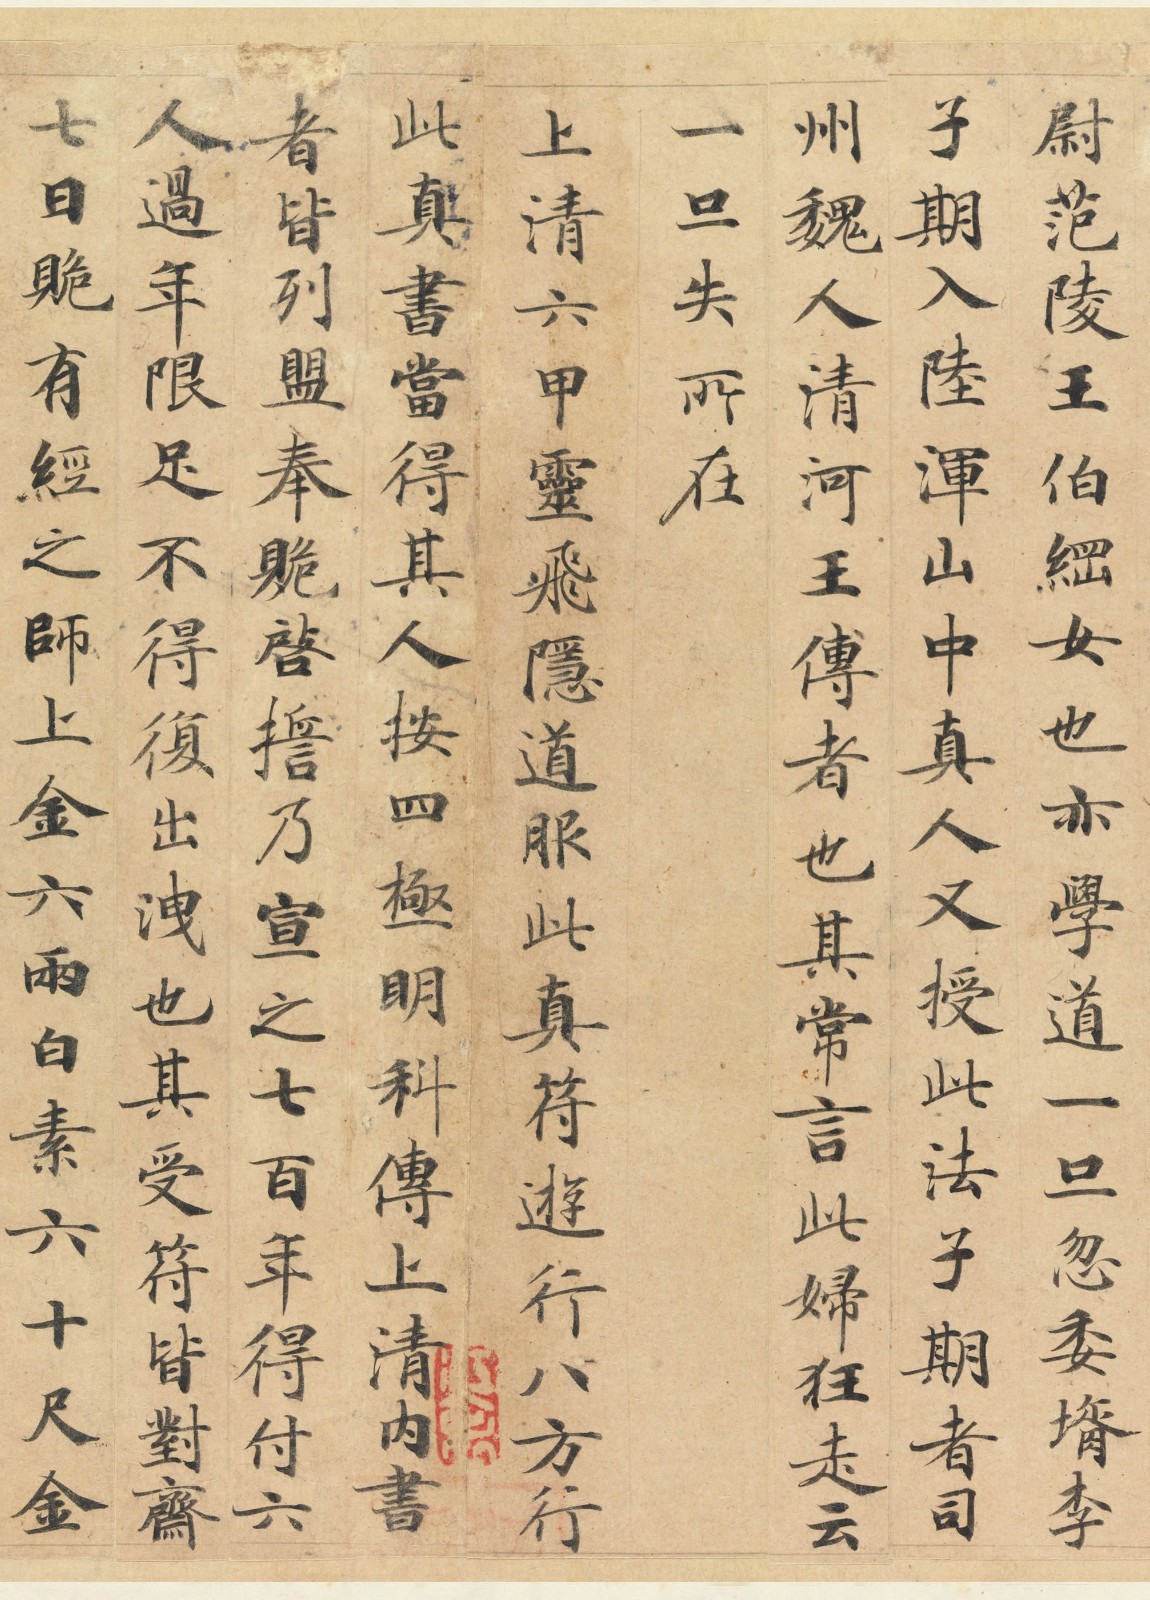 尉范陵王伯綱女也亦學道一旦忽委壻李
子期入陸渾山中真人又授此法子期者司
州魏人清河王傅者也其常言此婦狂走云
一旦失所在
上清六甲靈飛隱道服此真符遊行八方行
此真書當得其人按四極明科傳上清內書
者皆列盟奉貽啓誓乃宣之七百年得付六
人過年限足不得復出洩也其受符皆對齋
七日貽有經之師上金六兩白素六十尺金